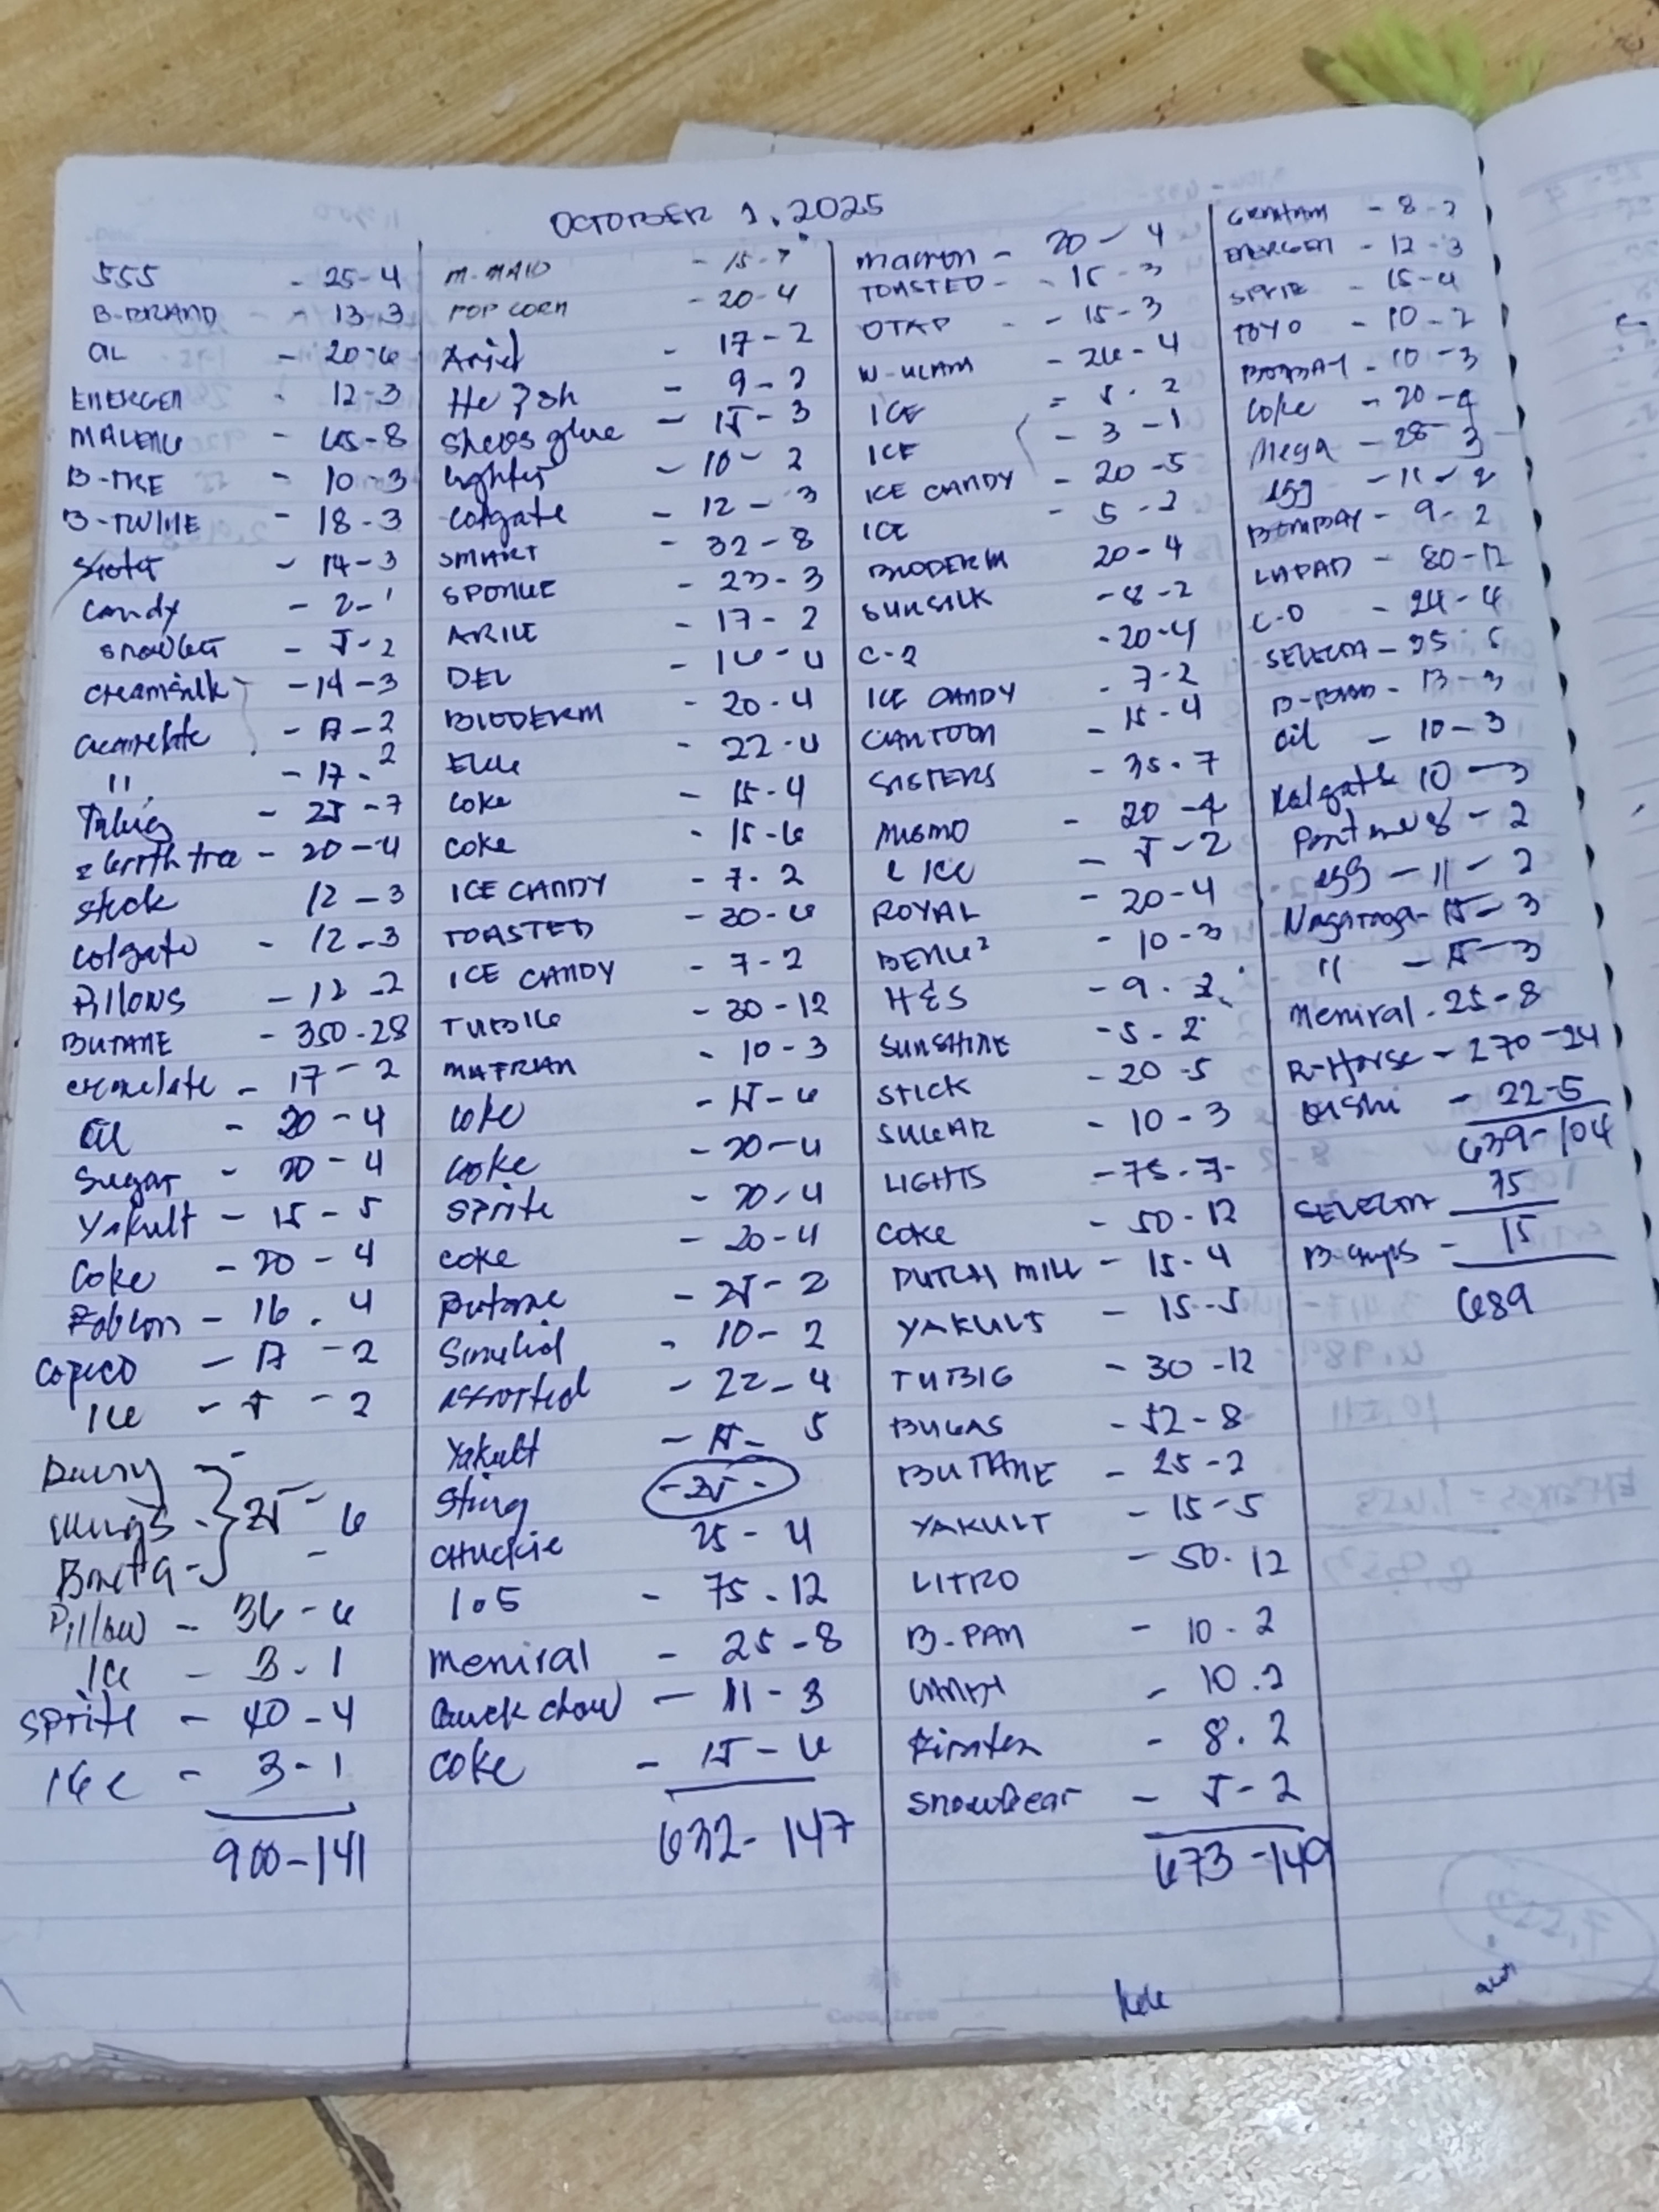 OCTOBER 1, 2025
555 - 25-4
B-BRAND - 13-3
OIL - 20-6
ENERGEN - 12-3
- 65-8
B-TRE - 10-3
B-TWINE - 18-3
- 14-3
Candy - 2-1
- 5-2
Creamsilk - 14-3
- 17-2
11 - 17-2
Tubig - 25-7
- 20-4
Stick 12-3
Colgate - 12-3
Pillows - 12-2
BUTANE - 350-28
- 17-2
Oil - 20-4
Sugar - 20-4
Yakult - 15-5
Coke - 20-4
- 16-4
Copico - 17-2
Ice - 5-2
Downy -
Wings - } 25-6
-
Pillow - 36-6
Ice - 3-1
Sprite - 40-4
Ice - 3-1
900-141
M-MAID - 15-
POP CORN - 20-4
Ariel - 17-2
- 9-2
Shoes glue - 15-3
lighter - 10-2
Colgate - 12-3
SMART - 32-8
SPONGE - 23-3
- 17-2
DEL - 16-4
BIODERM - 20-4
- 22-4
Coke - 15-4
Coke - 15-6
ICE CANDY - 7-2
TOASTED - 30-6
ICE CANDY - 7-2
TUBIG - 30-12
- 10-3
Coke - 15-6
Coke - 20-4
Sprite - 20-4
Coke - 20-4
Butane - 25-2
- 10-2
Assorted - 22-4
Yakult - 15-5
Sting - 25 -
CHUCKIE 25-4
1.5 - 75-12
Meniral - 25-8
Quick chow - 11-3
Coke - 15-6
632-147
- 20-4
TOASTED - 15-3
OTAP - 15-3
- 26-4
ICE - 5-2
ICE - 3-1
ICE CANDY - 20-5
ICE - 5-2
BIODERM 20-4
SUNSILK - 8-2
C-2 - 20-4
ICE CANDY - 7-2
CANTOON - 15-4
SISTERS - 35-7
MISMO - 20-4
ICE - 5-2
ROYAL - 20-4
BENG² - 10-3
H&S - 9-2
SUNSHINE - 5-2
STICK - 20-5
SUGAR - 10-3
LIGHTS - 75-7
COKE - 50-12
DUTCH MILL - 15-4
YAKULT - 15-5
TUBIG - 30-12
BUGAS - 52-8
BUTANE - 25-2
YAKULT - 15-5
LITRO - 50-12
B-PAN - 10-2
- 10-2
- 8-2
Snowbear - 5-2
673-149
GRAHAM - 8-2
ENERGEN - 12-3
SPRITE - 15-4
TOYO - 10-2
BOMBAY - 10-3
Coke - 20-4
Mega - 28-3
Egg - 11-2
BOMBAY - 9-2
LAPAD - 80-12
C-O - 24-4
SELECTA - 35-5
- 13-3
Oil - 10-3
Kolgate 10-3
8-2
Egg - 11-2
Nagaraya - 15-3
11 - 15-3
Meniral - 25-8
R-Horse - 270-24
Oishi - 22-5
639-104
SELECTA 35
- 15
689